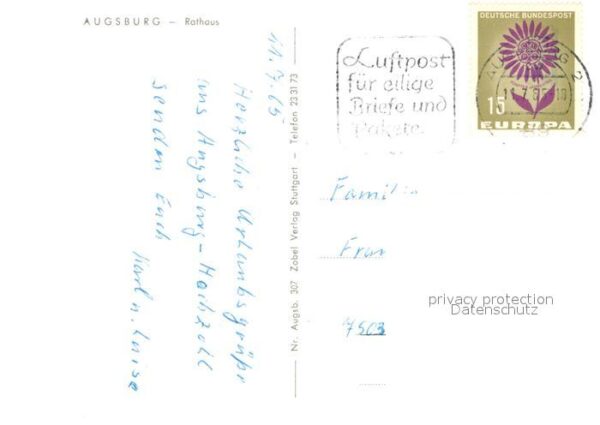 AUGSBURG – Rathaus
11.7.65
Herzliche Urlaubsgrüße
aus Augsburg-Hochzoll
senden Euch
Karl u. Luise
Nr. Augsb. 307 Zobel Verlag Stuttgart – Telefon 23 31 73
Luftpost
für eilige
Briefe und
Pakete
DEUTSCHE BUNDESPOST
15
EUROPA
AUGSBURG 2
11.7.65
Famili
Frau
7503
privacy protection
Datenschutz